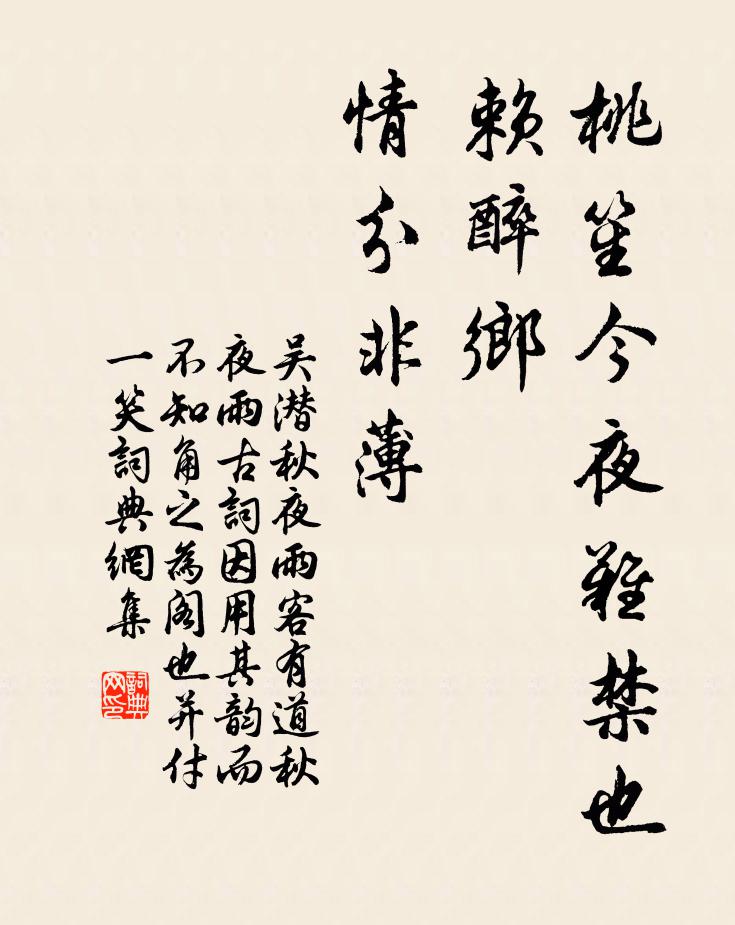 桃笙今夜難禁也
賴醉鄉
情分非薄
吴潜秋夜雨客有道秋
夜雨古詞因用其韵而
不知角之為阁也并付
一笑詞典網集
詞典网印